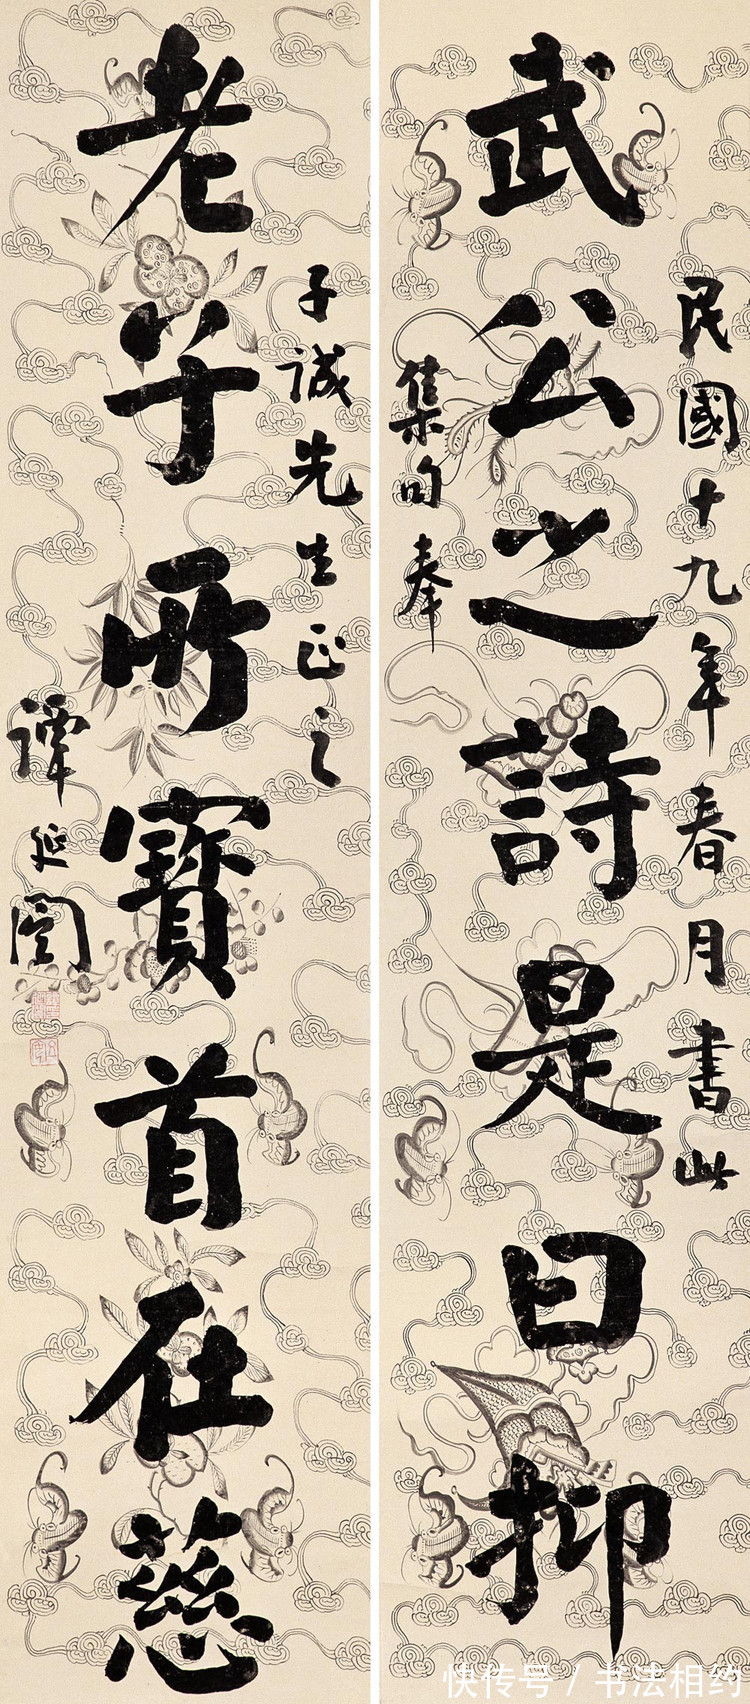 民國十九年春月書此
武公之詩是曰抑
集句奉
子誠先生正之
老子所寶首在慈
譚延闓
快传号 / 书法相约